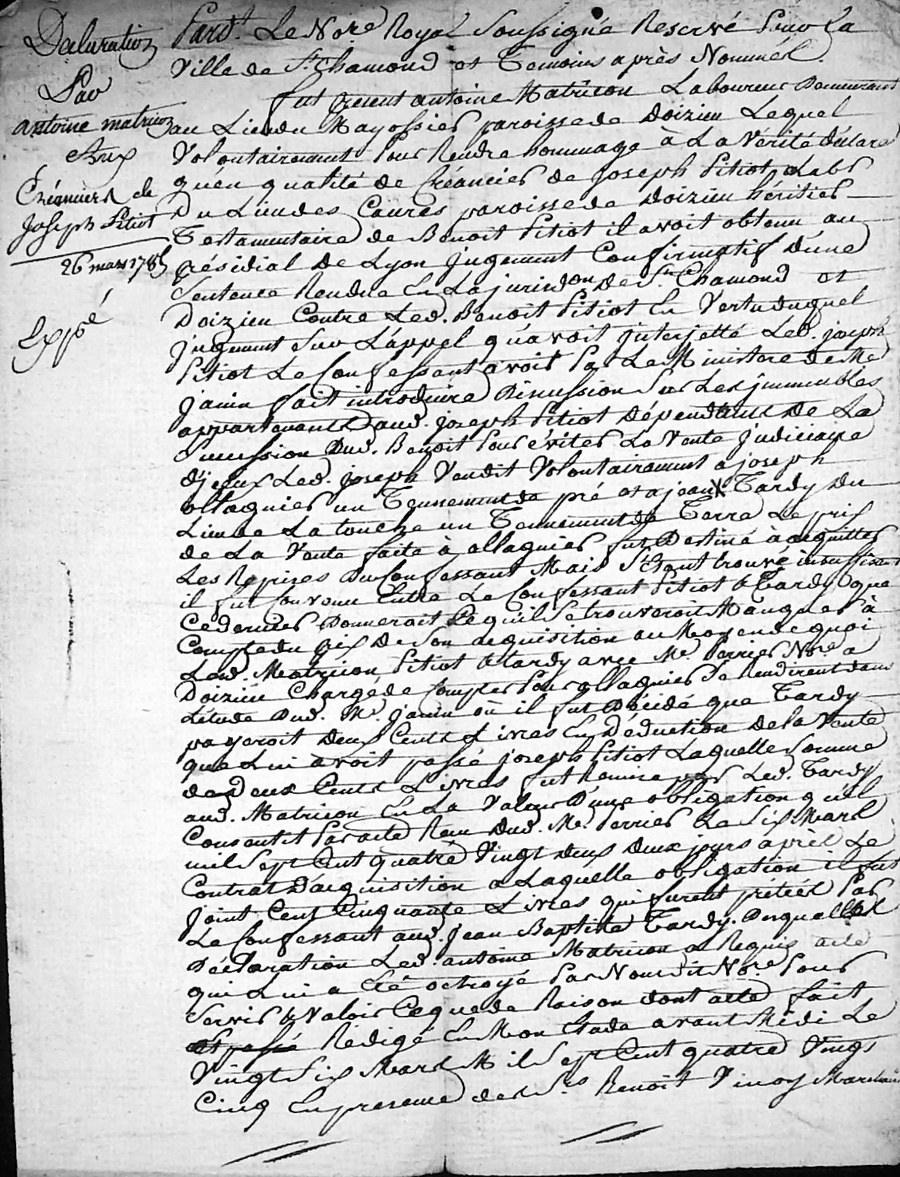 Declaration
Par
antoine matricon
Aux
Créanciers de
Joseph Pitiot
26 mars 1785
Expé
Pard.t Le No.re Royal Soussigné Reservé Pour La
Ville de S.t Chamond et Temoins après Nommés.
fut present antoine Matricon Laboureur Demeurant
au Lieu du Mayossier paroisse de Doizieu Lequel
Volontairement Pour Rendre hommage à La Verité déclare
qu'en qualité de Créancier de Joseph Pitiot Labr
Du Lieu des Caures paroisse de Doizieu héritier
Testamentaire de Benoit Pitiot il avoit obtenu au
présidial De Lyon jugement Confirmatif d'une
Sentence Rendue En La jurisd.on De S.t Chamond et
Doizieu Contre Led. Benoit Pitiot En Vertu duquel
jugement Sur L'appel qu'avoit interjetté Led. joseph
Pitiot Le Confessant avoit Par Le Ministere de Me
Janin fait introduire Discussion Sur Les immeubles
appartenants aud. joseph Pitiot Dépendants De La
Succession Dud. Benoit Pour éviter La Vente judiciaire
d'jceux Led. joseph Vendit Volontairement a joseph
ollagnier un Tennement de pré et a jean Tardy Du
Lieu de La touche un Tennement de Terre Le prix
de La Vente faite à ollagnier fut Destiné à acquitter
Les Reprises Du Confessant Mais S'étant trouvé insuffisant
il fut Convenu Entre Le Confessant Pitiot & Tardy que
Ce dernier Donneroit Ce qu'il Se trouveroit Manquer à
Compte du prix De Son acquisition au Moyen de quoi
Led. Matricon, Pitiot & tardy avec Me. Perrier No.re a
Doizieu Chargé de Compter Pour ollagnier Se Rendirent dans
L'étude Dud. Me. Janin où il fut Décidé que Tardy
payeroit Deux Cents Livres En Déduction De la Vente
que Lui avoit passé joseph Pitiot Laquelle Somme
de Deux Cents Livres fut Remise par Led. Tardy
aud. Matricon En La Valeur D'une obligation qu'il
Consentit Par acte Reçu Dud. Me. Perrier Le Six Mars
mil Sept Cent quatre Vingt deux Deux jours après Le
Contrat D'acquisition a Laquelle obligation il fut
Joint Cent Cinquante Livres qui furent pretées Par
Le Confessant aud. Jean Baptiste Tardy. Desquelles
Déclaration Led. antoine Matricon a Requis acte
qui Lui a Eté octroyé Par Nous dit No.re Pour
Servir & Valoir Ce que de Raison dont acte fait
Rédigé En Mon Etude avant Midi Le
Vingt Six Mars Mil Sept Cent quatre Vingt
Cinq En presence de S.rs Benoit Vinoy Marchand